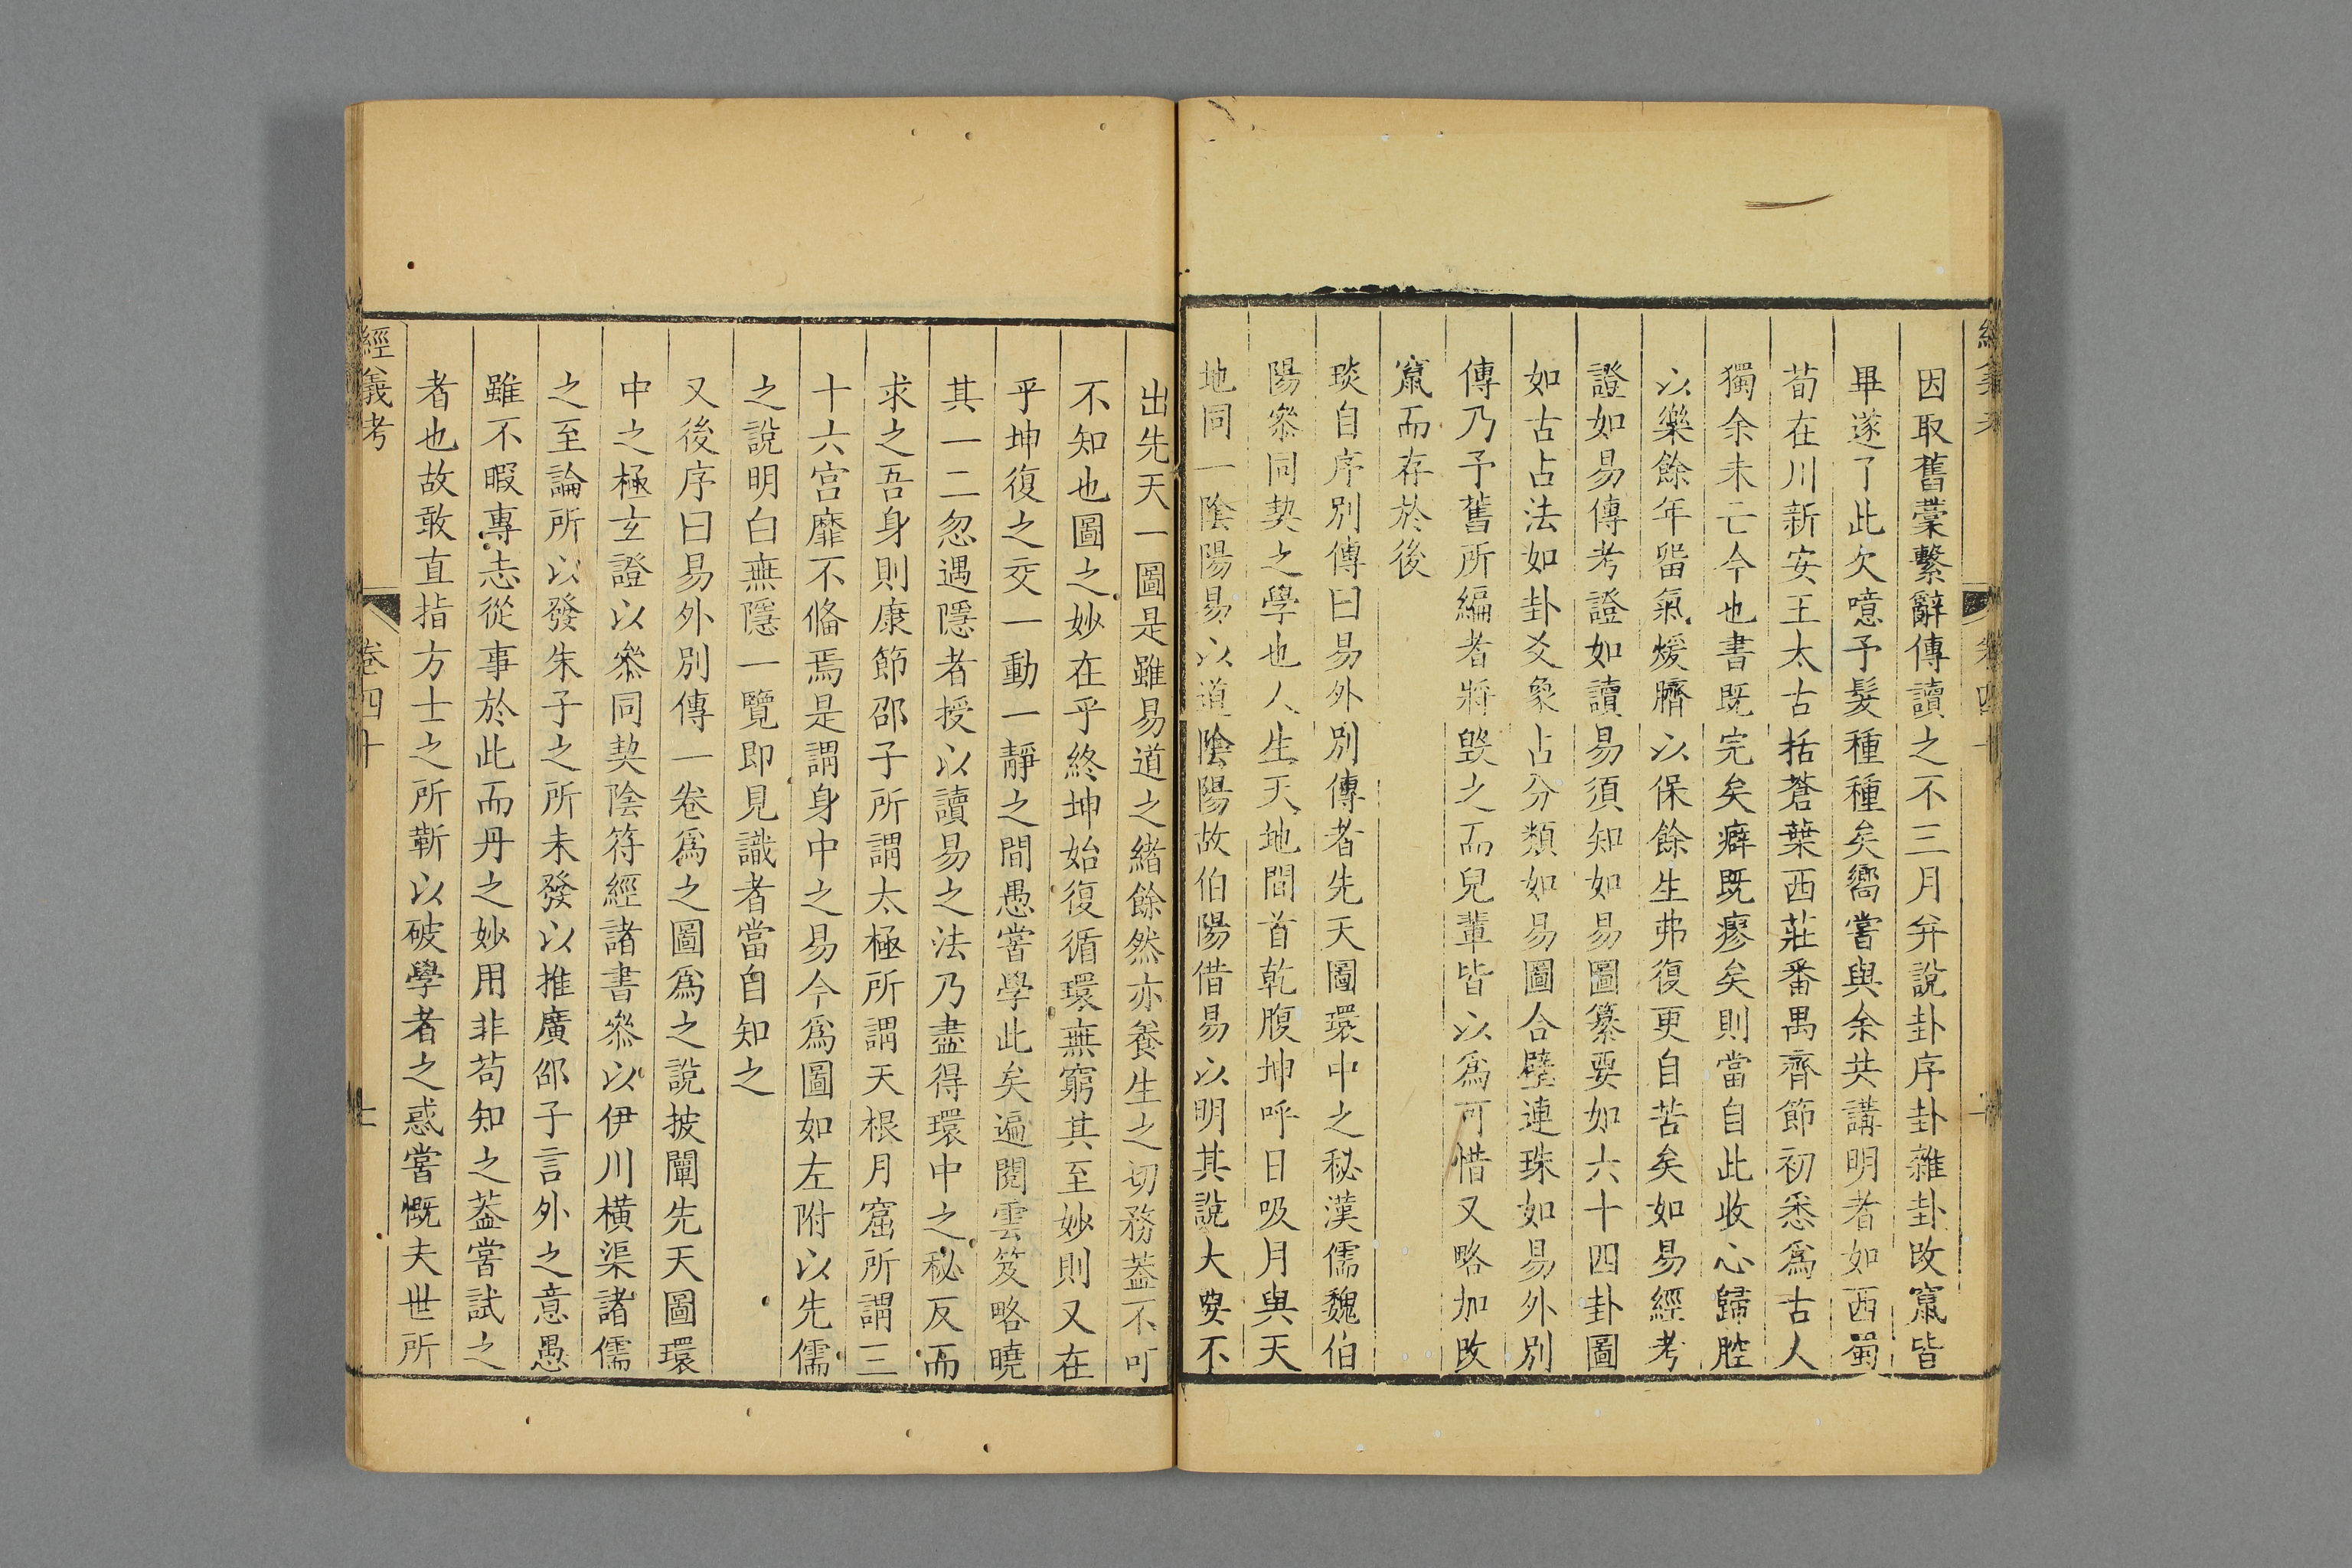 因取舊藁繫辭傳讀之不三月弁說卦序卦雜卦改竄皆
畢遂了此欠噫予髮種種矣嚮嘗與余共講明者如西蜀
荀在川新安王太古括蒼葉西莊番禺齊節初悉爲古人
獨余未亡今也書既完矣癖既瘳矣則當自此收心歸腔
以樂餘年留氣煖臍以保餘生弗復更自苦矣如易經考
證如易傳考證如讀易須知如易圖纂要如六十四卦圖
如古占法如卦爻象占分類如易圖合璧連珠如易外別
傳乃予舊所編者將毀之而兒輩皆以爲可惜又略加改
竄而存於後
琰自序別傳曰易外別傳者先天圖環中之秘漢儒魏伯
陽叅同契之學也人生天地間首乾腹坤呼日吸月與天
地同一陰陽易以道陰陽故伯陽借易以明其說大要不
出先天一圖是雖易道之緒餘然亦養生之切務葢不可
不知也圖之妙在乎終坤始復循環無窮其至妙則又在
乎坤復之交一動一靜之間愚嘗學此矣遍閱雲笈略曉
其一二忽遇隱者授以讀易之法乃盡得環中之秘反而
求之吾身則康節邵子所謂太極所謂天根月窟所謂三
十六宮靡不備焉是謂身中之易今爲圖如左附以先儒
之說明白無隱一覽即見識者當自知之
又後序曰易外別傳一卷爲之圖爲之說披闡先天圖環
中之極玄證以叅同契陰符經諸書叅以伊川橫渠諸儒
之至論所以發朱子之所未發以推廣邵子言外之意愚
雖不暇專志從事於此而丹之妙用非苟知之葢嘗試之
者也故敢直指方士之所靳以破學者之惑嘗慨夫世所
經義考 卷四十 七